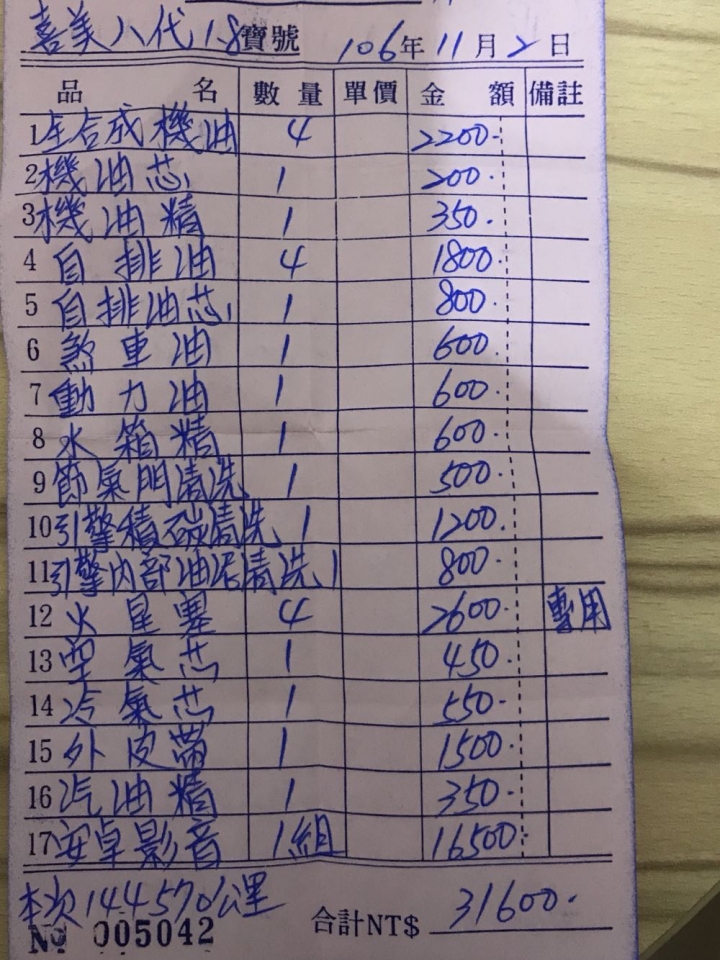 喜美八代1.8寶號 106年11月2日
品名 數量 單價 金額 備註
1全合成機油 4 2200.
2機油芯 1 200.
3機油精 1 350.
4自排油 4 1800.
5自排油芯 1 800.
6煞車油 1 600.
7動力油 1 600.
8水箱精 1 600.
9節氣門清洗 1 500.
10引擎積碳清洗 1 1200.
11引擎內部油泥清洗 1 800.
12火星塞 4 2600. 專用
13空氣芯 1 450.
14冷氣芯 1 550.
15外皮帶 1 1500.
16汽油精 1 350.
17安卓影音 1組 16500.
本次144570公里
合計NT$ 31600.
№ 005042